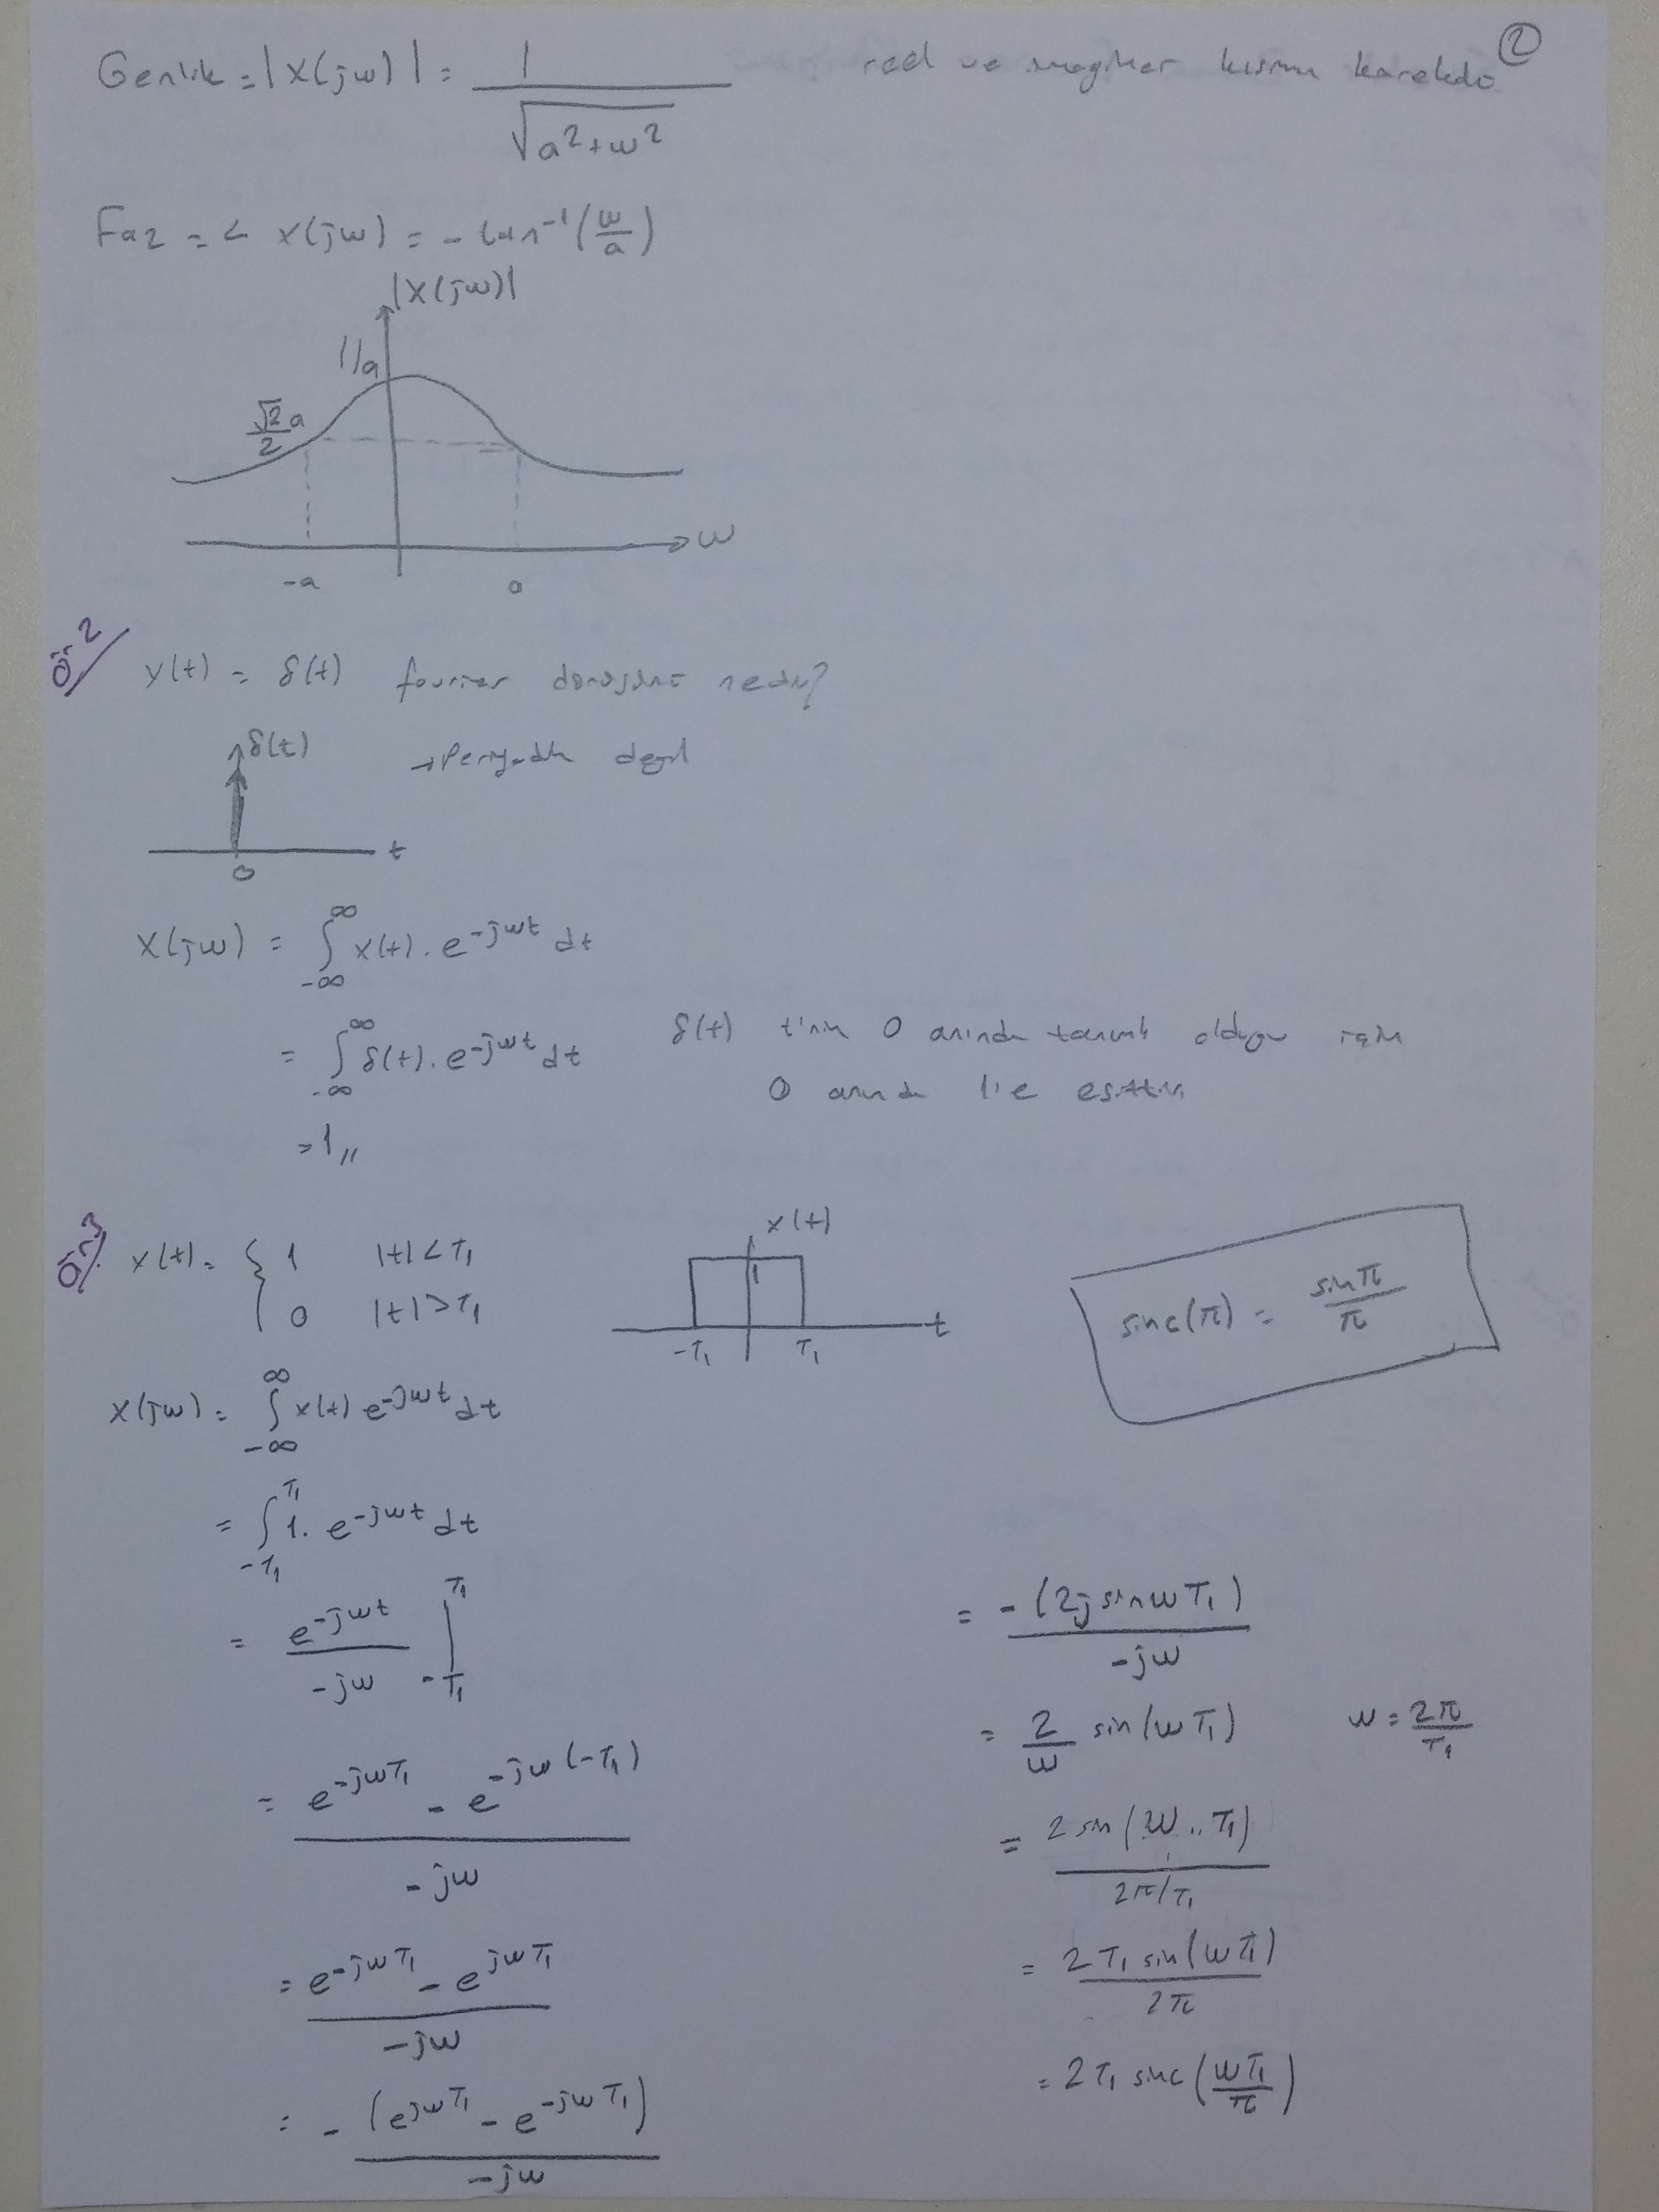 ②
Genlik = |X(jw)| = 1 / √(a²+w²) reel ve imaginer kısmın karekökü
Faz = ∠ X(jw) = - tan⁻¹(w/a)
|X(jw)|
1/a
√2/2 a
w
-a a
Ör 2 x(t) = δ(t) fourier dönüşümü nedir?
δ(t) → Periyodik değil
t
0
X(jw) = ∫_{-∞}^{∞} x(t). e^{-jwt} dt
= ∫_{-∞}^{∞} δ(t). e^{-jwt} dt δ(t) t'nin 0 anında tanımlı olduğu için
0 anında 1'e eşittir
= 1,,
Ör 3 x(t) = { 1 |t| < T₁
0 |t| > T₁
x(t)
1
-T₁ T₁ t
sinc(π) = sinπ / π
X(jw) = ∫_{-∞}^{∞} x(t) e^{-jwt} dt
= ∫_{-T₁}^{T₁} 1. e^{-jwt} dt
= e^{-jwt} / -jw |_{-T₁}^{T₁}
= (e^{-jwT₁} - e^{-jw(-T₁)}) / -jw
= (e^{-jwT₁} - e^{jwT₁}) / -jw
= - (e^{jwT₁} - e^{-jwT₁}) / -jw
= - (2j sinwT₁) / -jw
= 2/w sin(wT₁) w = 2π/T₁
= 2 sin(w..T₁) / 2π/T₁
= 2T₁ sin(wT₁) / 2π
= 2T₁ sinc(wT₁/π)